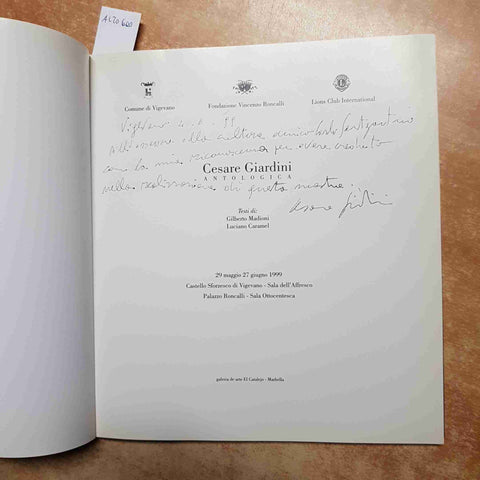 A120600
Comune di Vigevano
Fondazione Vincenzo Roncalli
Lions Club International
Vigevano 99
All'assessore alla cultura amico
con la mia riconoscenza per avere creduto
nella realizzazione di questa mostra.
Cesare Giardini
ANTOLOGICA
Testi di:
Gilberto Madioni
Luciano Caramel
29 maggio 27 giugno 1999
Castello Sforzesco di Vigevano - Sala dell'Affresco
Palazzo Roncalli - Sala Ottocentesca
galeria de arte El Catalejo - Marbella